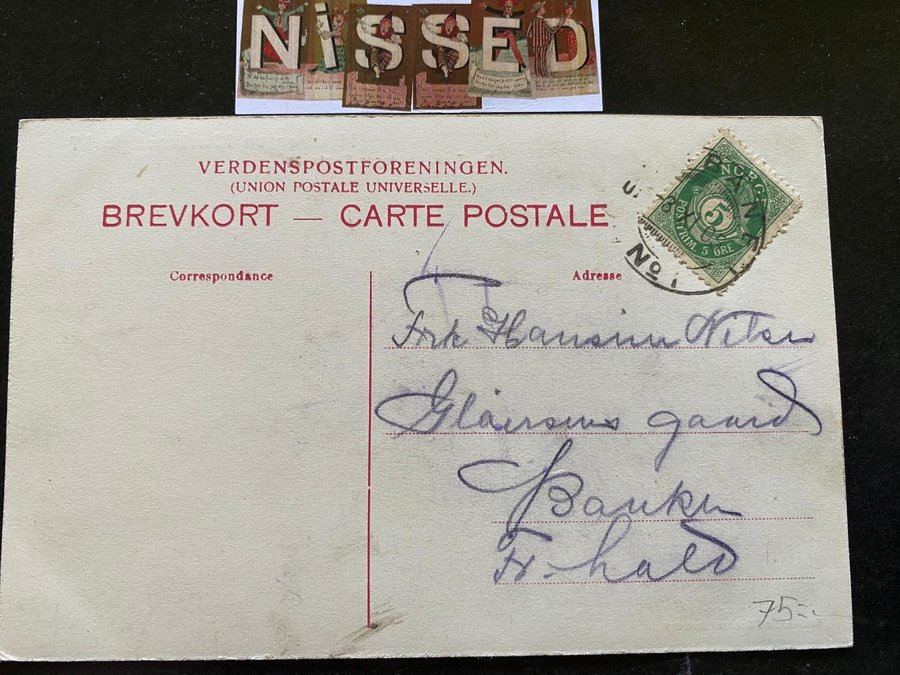 NISSED
VERDENSPOSTFORENINGEN.
(UNION POSTALE UNIVERSELLE.)
BREVKORT — CARTE POSTALE
NORGE
POSTFRIM. 5 ØRE
No 1
Correspondance
Adresse
Frk Hansine
gaard
Banken
Fr.hald
75